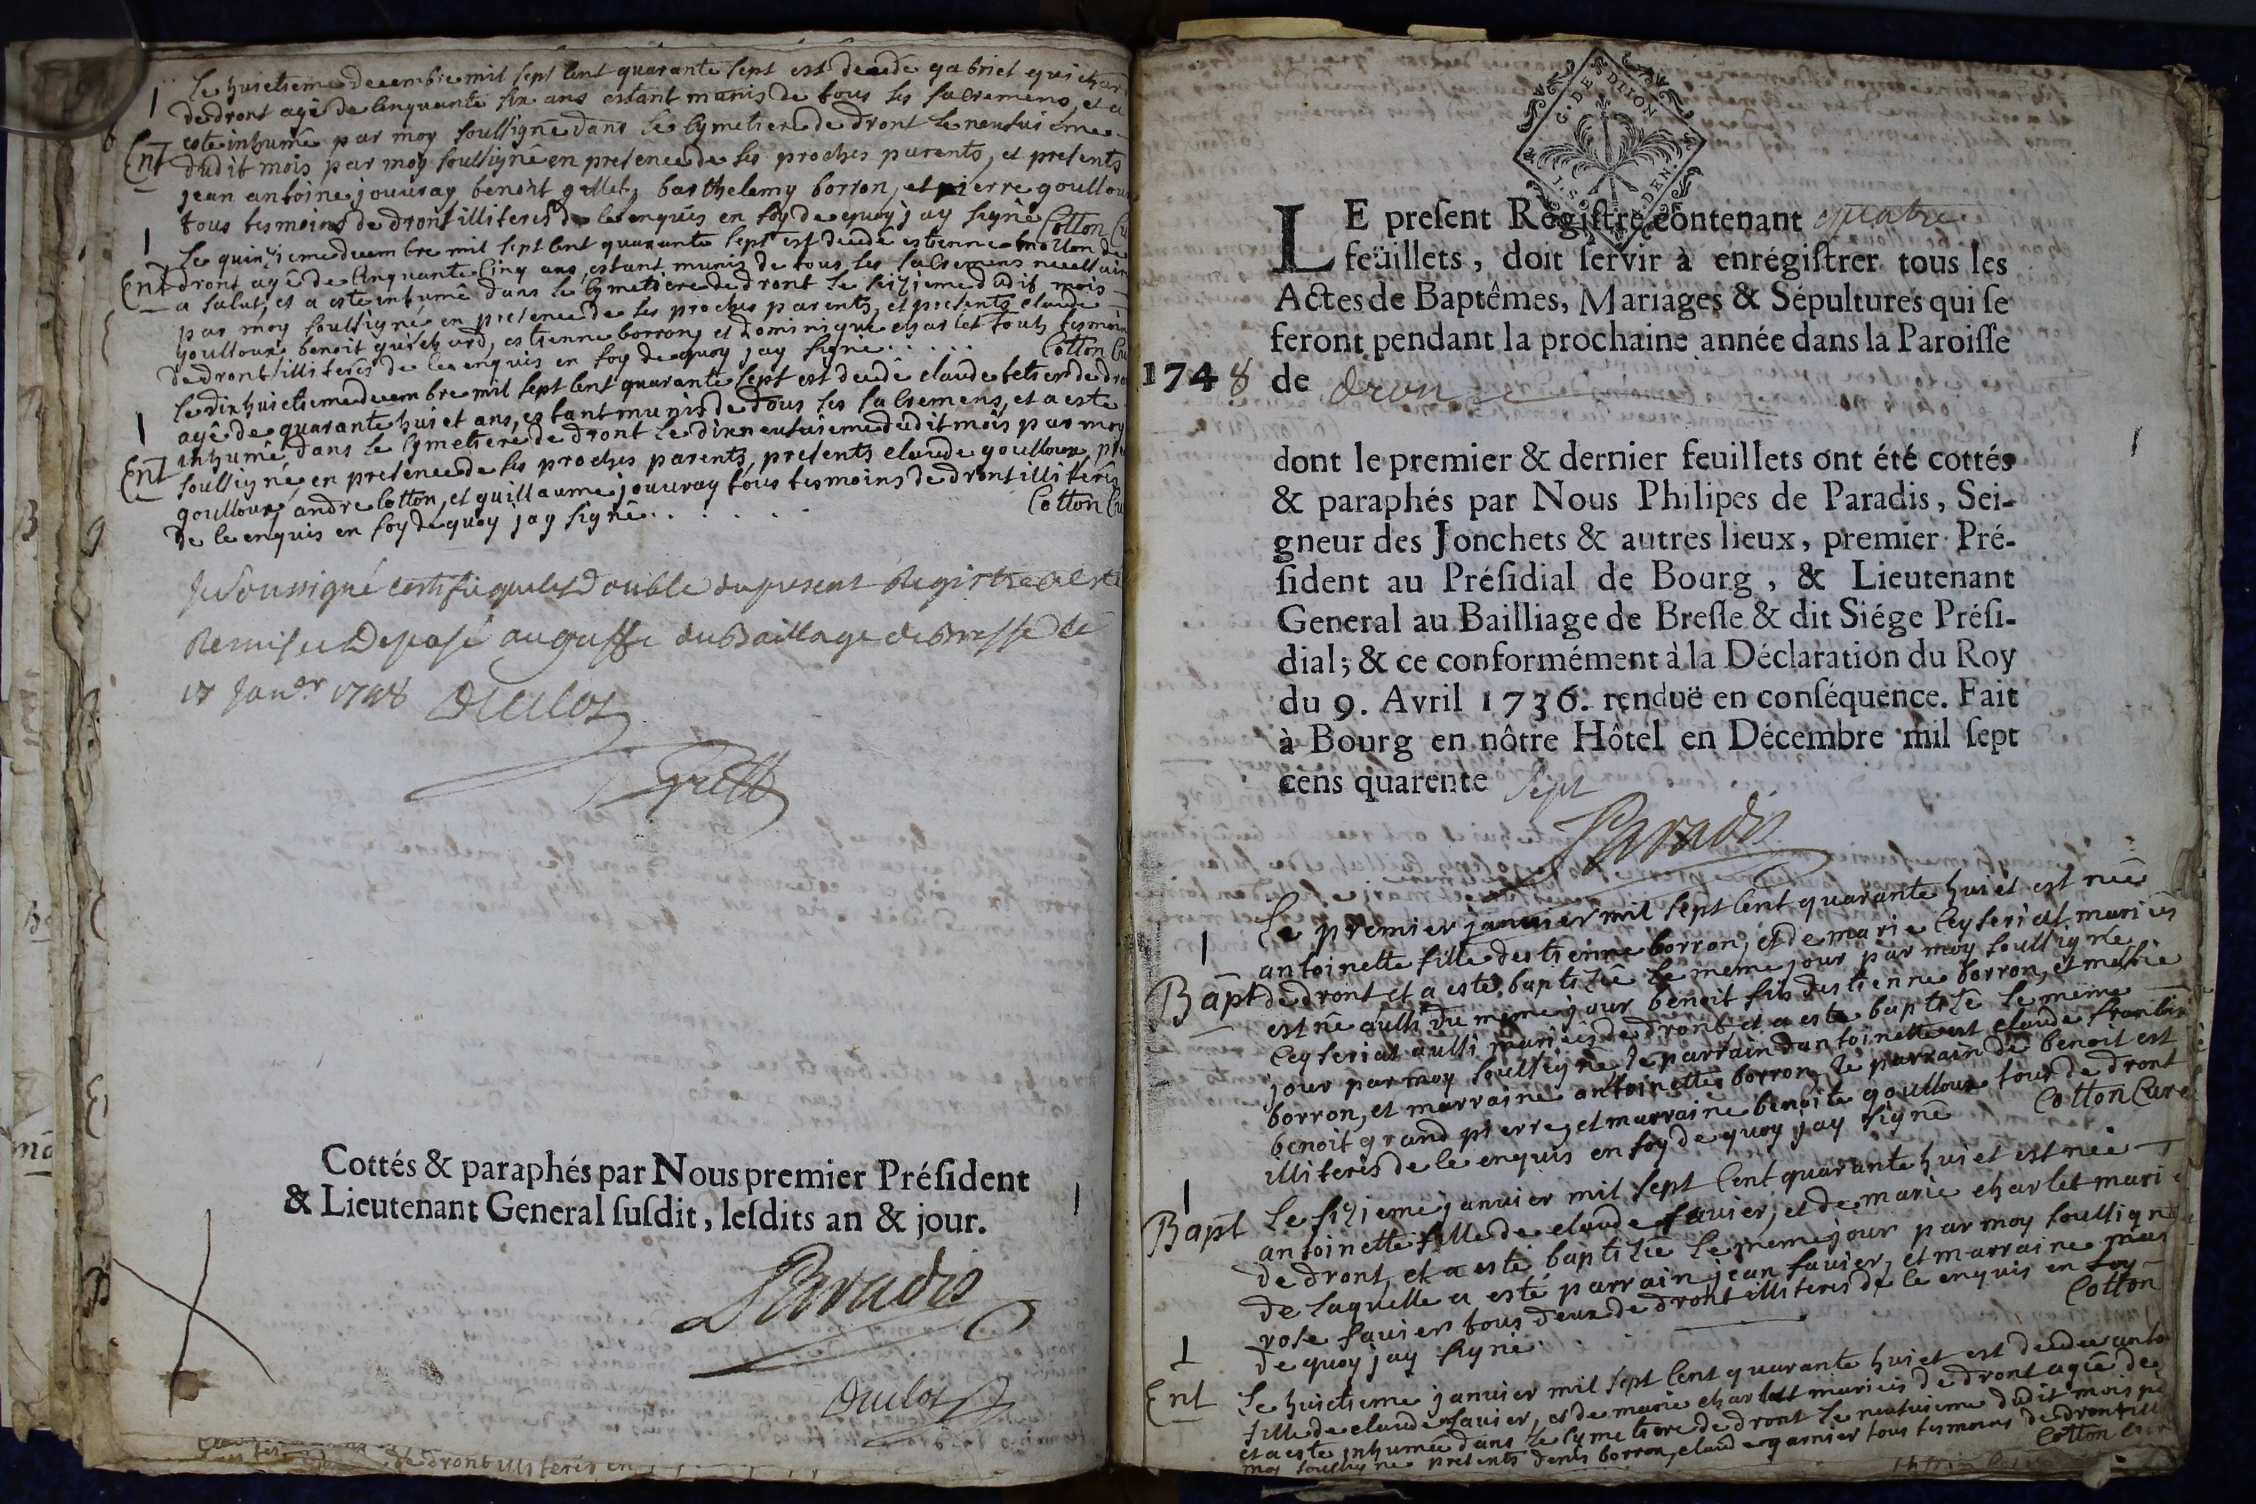 1
Le huictieme decembre mil sept cent quarante sept est decedé gabriel guichar
de dront agé de cinquante six ans estant munis de tous ses sacremens, et a
esté inhumé par moy soussigné dans le cymetiere de dront le neufuieme
Ent
dudit mois par moy soussigné en presence de ses proches parents, et presents
jean antoine jouuray benoit gellet, barthelemy borron, et pierre goulloux
tous tesmoins de dront illiterés de ce enquis en foy de quoy jay signé Cotton Cu
1
Le quinzieme decembre mil sept cent quarante sept est decedé estienne de
Ent
dront agé de cinquante cinq ans, estant munis de tous ses sacremens necessair
a salut, et a esté inhumé dans le cymetiere de dront le seizieme dudit mois
par moy soussigné en presence de ses proches parents, et presents claude
goulloux benoit guichard, estienne borron, et dominique charlet touts tesmoins
de dront illiterés de ce enquis en foy de quoy jay signé . . . . . Cotton Cu
1
Le dixhuictieme decembre mil sept cent quarante sept est decedé claude de dro
agé de quarante huict ans, estant munis de tous ses sacremens, et a esté
inhumé dans le cymetiere de dront le dixneufuieme dudit mois par moy
Ent
soussigné, en presence de ses proches parents, presents claude goulloux
goulloux, andre Cotton, et guillaume jouuray tous tesmoins de dront illiterés
de ce enquis en foy de quoy jay signé . . . . . . Cotton Cu
Je Soussigné certifie que le Double du present Registre a esté
Remis et Deposé au greffe du Baillage de Bresse le
17 Janer 1748 Duclos
Cottés & paraphés par Nous premier Président
& Lieutenant General susdit, lesdits an & jour.
Paradis
Duclos
G. DENDITION
LE present Registre contenant quatre
feüillets, doit servir à enrégistrer tous les
Actes de Baptêmes, Mariages & Sépultures qui se
feront pendant la prochaine année dans la Paroisse
1748 de dron
dont le premier & dernier feuillets ont été cottés
& paraphés par Nous Philipes de Paradis, Sei-
gneur des Jonchets & autres lieux, premier Pré-
sident au Présidial de Bourg, & Lieutenant
General au Bailliage de Bresse & dit Siége Prési-
dial; & ce conformément à la Déclaration du Roy
du 9. Avril 1736. renduë en conséquence. Fait
à Bourg en nôtre Hôtel en Décembre mil sept
cens quarente sept
Paradis
1
Le premier januier mil sept cent quarante huict est neé
antoinette fille destienne borron, et de marie Ceyseriat mariés
Bapt
de dront et a esté baptisée le meme jour par moy soussigné
est né aussi du meme jour benoit fils destienne borron, et marie
Ceyseriat aussi mariés de dront et a esté baptisé le meme
jour par moy soussigné le parrain dantoinette est claude
borron, et marraine antoinette borron, le parrain de benoit est
benoit grand pierre, et marraine benoite goulloux tous de dront
illiterés de ce enquis en foy de quoy jay signé Cotton Curé
1
Le sizieme januier mil sept cent quarante huict est née
Bapt
antoinette fille de claude fauier, et de marie charlet marié
de dront, et a esté baptisée le meme jour par moy soussigné
de laquelle a esté parrain jean fauier, et marraine mar
rose fauier tous deux de dront illiterés de ce enquis en foy
de quoy jay signé Cotton
1
Ent
Le huictieme januier mil sept cent quarante huict est decedée anto
fille de claude fauier, et de marie charlet mariés de dront agée de
et a esté inhumée dans le cymetiere de dront le neufuieme dudit mois
moy soussigné presents denis borron, claude garnier tous tesmoins de dront
Cotton Curé